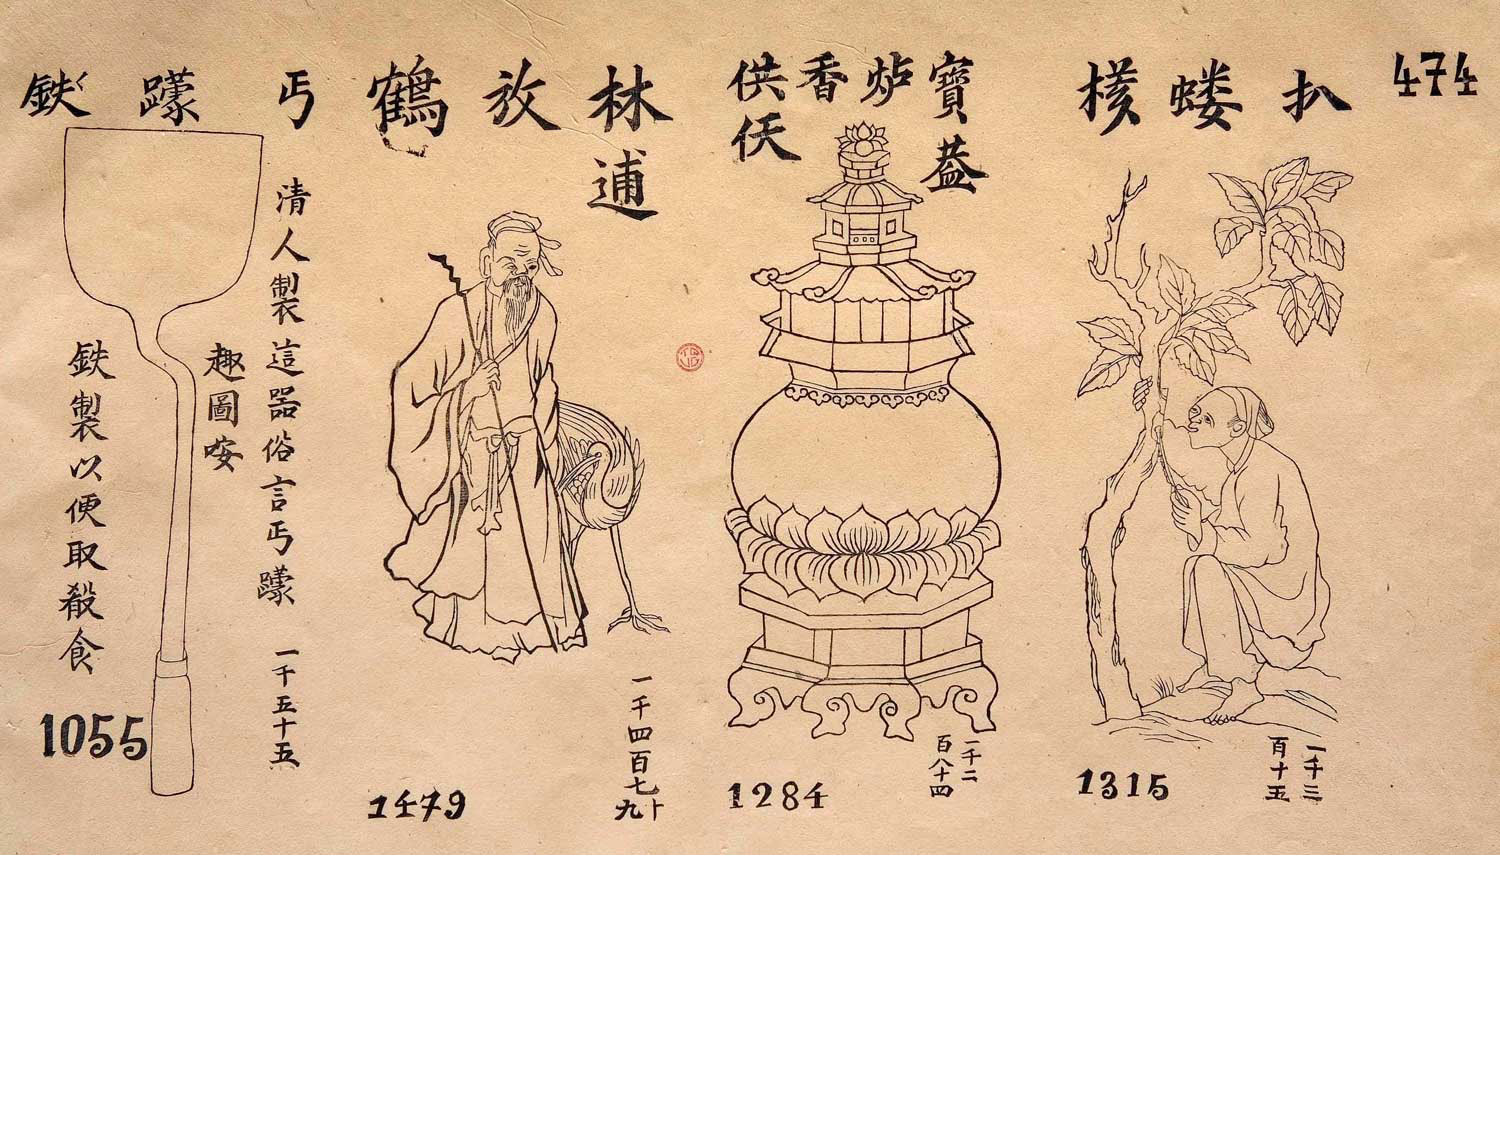 474
扒蝼
1315
一千三
百十五
寶葢
炉
香
供仸
1284
一千二
百八十四
林逋放鶴
一千四百七十
九
1479
丐 鉄
清人製這器俗言丐 一千五十五
趣圖咹
鉄製以便取殽食
1055